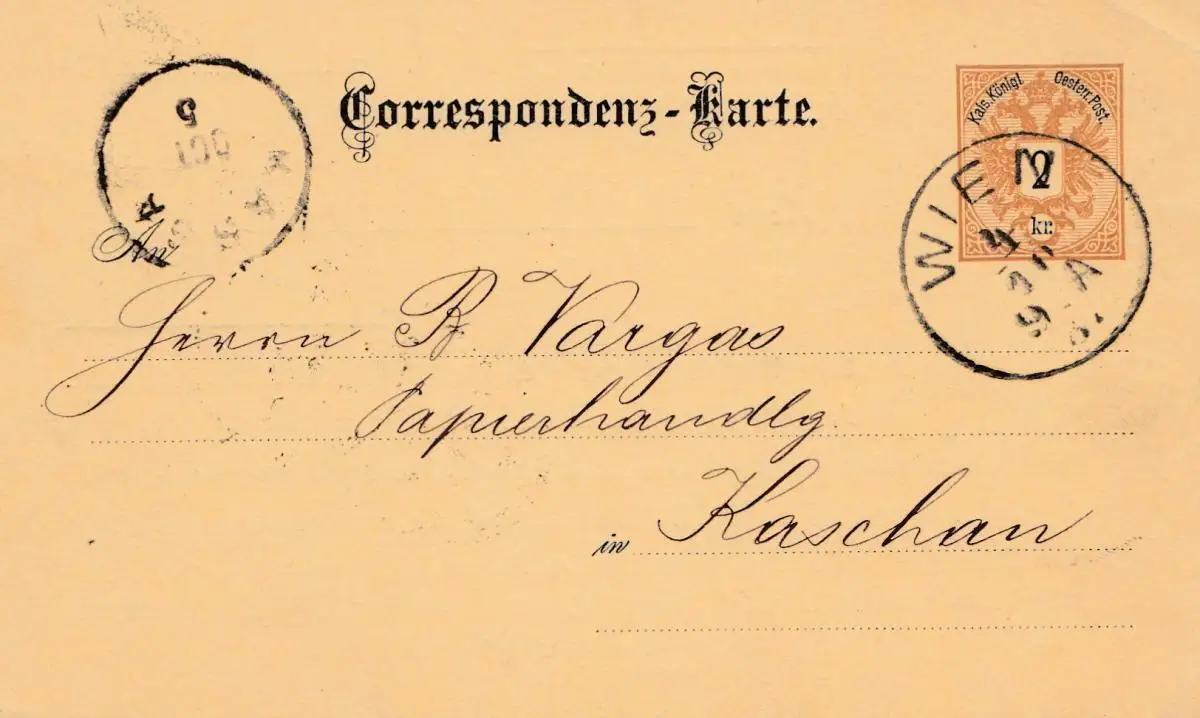 Correspondenz-Karte.
Kais. Königl. Oesterr. Post.
2
kr.
WIEN
5
OCT
An
Herrn B. Vargas
Papierhandlg.
in Kaschau